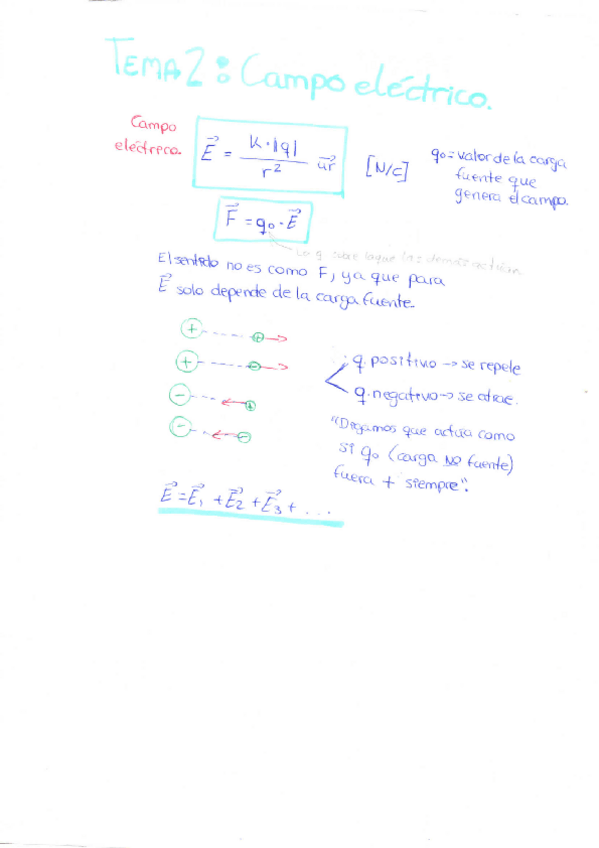 TEMA 2: Campo eléctrico.
Campo
eléctrico.
E⃗ = K·|q| / r² u⃗r [N/C]
q₀ = valor de la carga
fuente que
genera el campo.
F⃗ = q₀ · E⃗
La q sobre la que las demás actúan
El sentido no es como F, ya que para
E⃗ solo depende de la carga fuente.
+ + →
+ - →
- ← +
- ← -
q. positivo → se repele
q. negativo → se atrae.
"Digamos que actúa como
si q₀ (carga NO fuente)
fuera + siempre".
E⃗ = E⃗₁ + E⃗₂ + E⃗₃ + ...